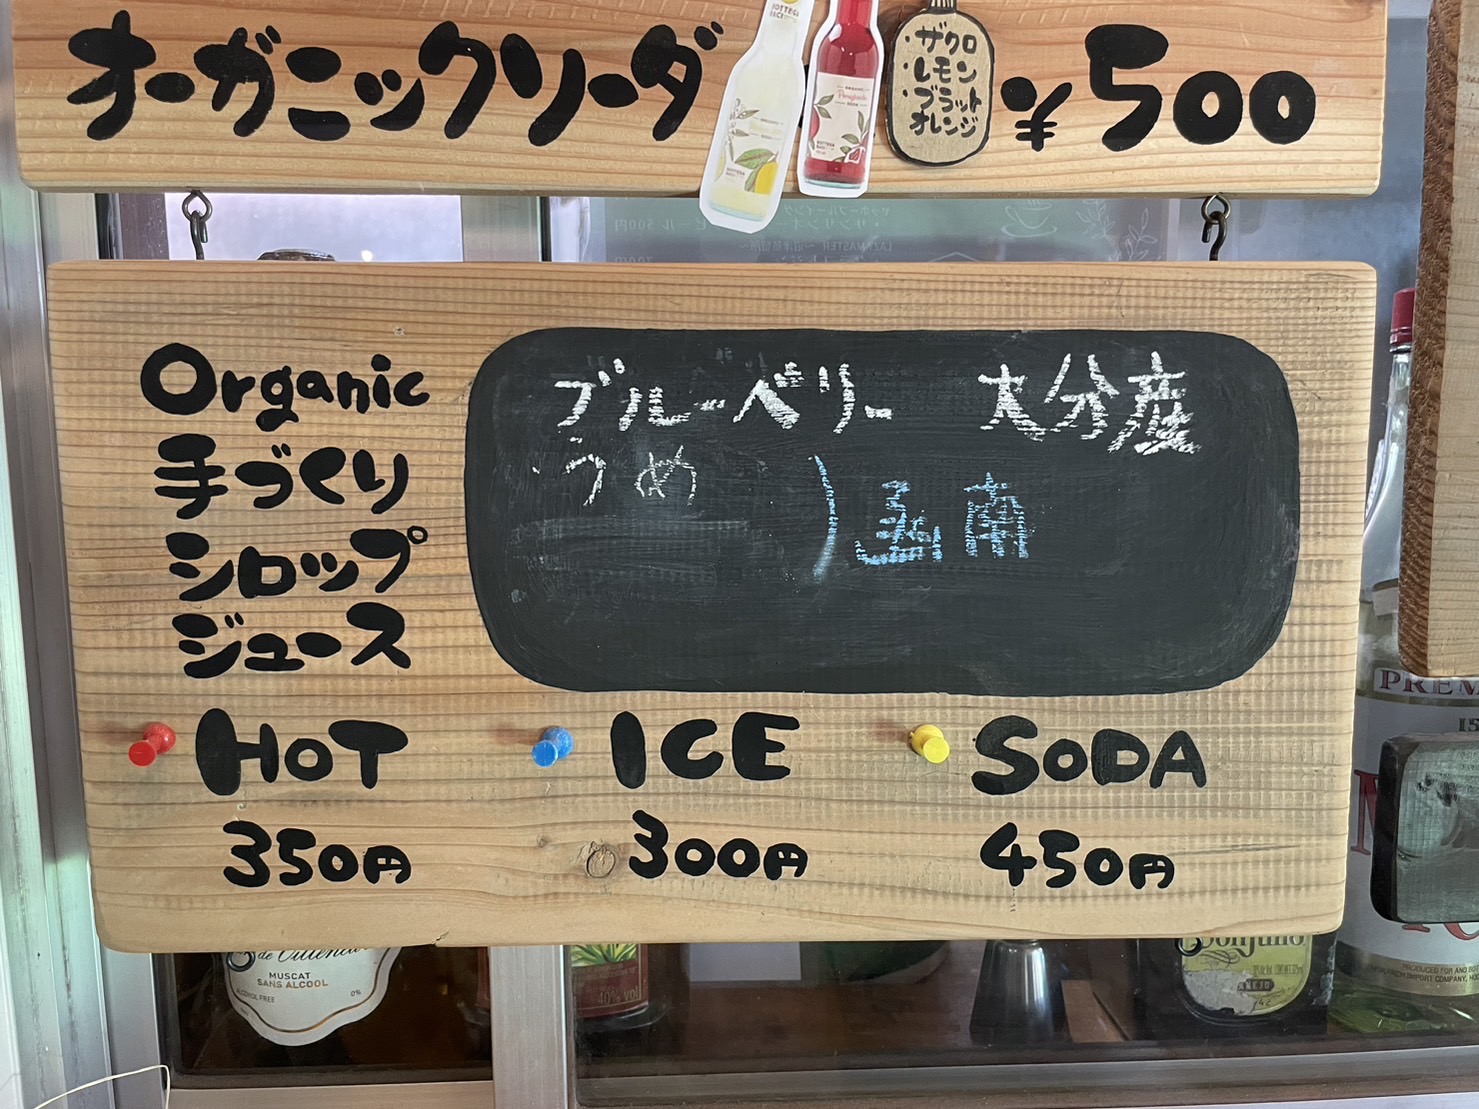 オーガニックソーダ
・ザクロ
・レモン
・ブラッド
オレンジ
¥500
Organic
手づくり
シロップ
ジュース
ブルーベリー 大分産
うめ
函南
HOT
ICE
SODA
350円
300円
450円
MUSCAT
SANS ALCOOL
ALCOHOL FREE
0%
40% vol
AÑEJO
PREM
PRODUCED FOR AND BO